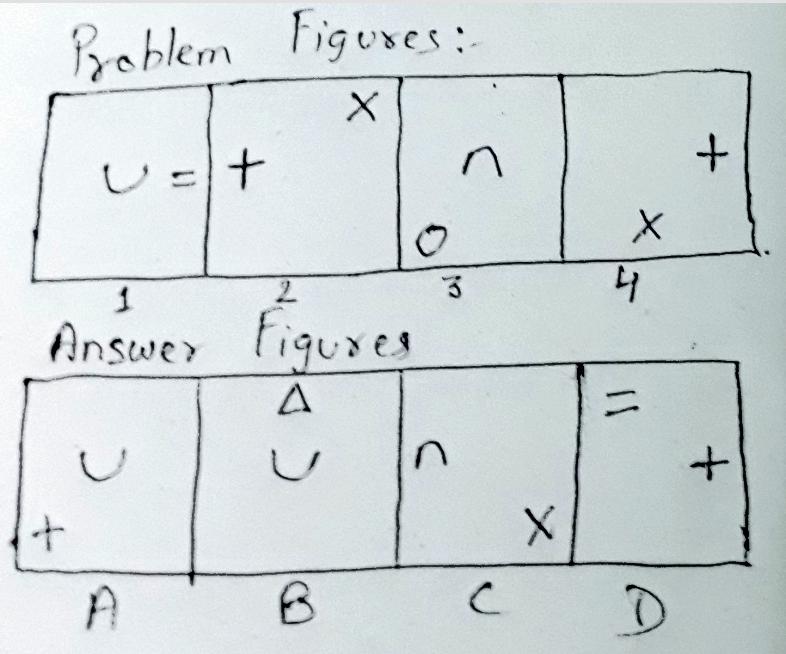 Problem Figures:-
∪ = + × ∩ O + ×
1 2 3 4
Answer Figures
∪ + Δ ∪ ∩ × = +
A B C D